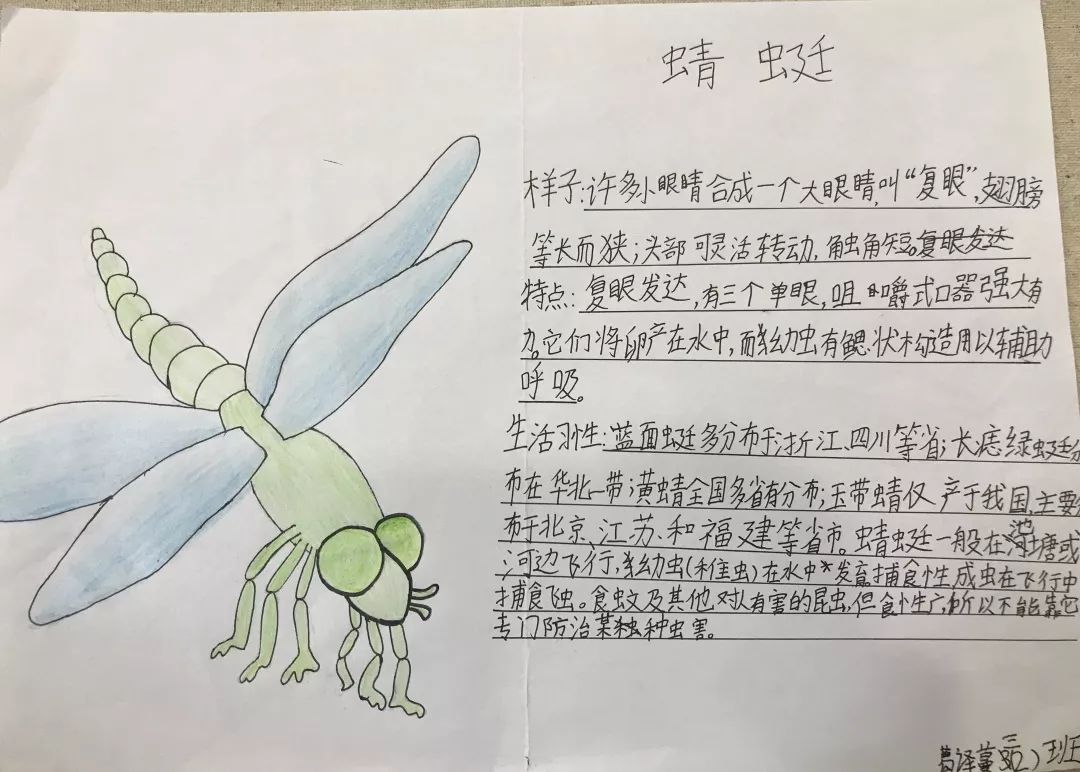 蜻 蜓
样子:许多小眼睛合成一个大眼睛,叫“复眼”,翅膀
等长而狭;头部可灵活转动,触角短。复眼发达
特点:复眼发达,有三个单眼,咀咀嚼式口器强大有
力。它们将卵产在水中,而幼虫有鳃状构造用以辅助
呼吸。
生活习性:蓝面蜓多分布于浙江、四川等省;长痣绿蜓分
布在华北一带;黄蜻全国多省有分布;玉带蜻仅产于我国,主要分
布于北京、江苏、和福建等省市。蜻蜓一般在池塘或
河边飞行,幼虫(稚虫)在水中发育。捕食性成虫在飞行中
捕食飞虫。食蚊及其他对人有害的昆虫,但食性广,所以不能靠它
专门防治某独种虫害。
葛泽 三(2)班